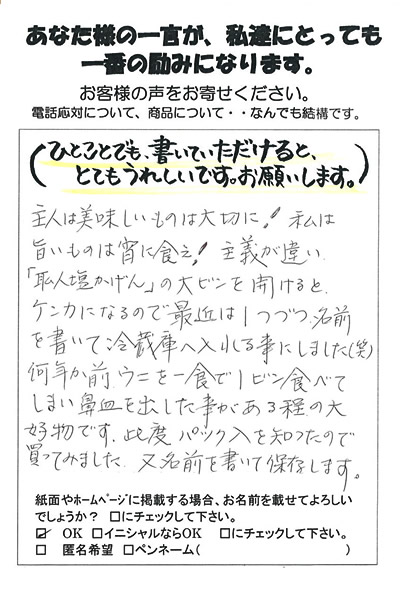 あなた様の一言が、私達にとっても
一番の励みになります。
お客様の声をお寄せください。
電話応対について、商品について・・なんでも結構です。
(ひとことでも、書いていただけると、
とてもうれしいです。お願いします。)
主人は美味しいものは大切に! 私は
旨いものは宵に食え! 主義が違い
「恥人塩かげん」の大ビンを開けると
ケンカになるので最近は1つづつ、名前
を書いて冷蔵庫へ入れる事にしました(笑)
何年か前、ウニを一食で1ビン食べて
しまい鼻血を出した事がある程の大
好物です。此度パック入を知ったので
買ってみました 又名前を書いて保存します。
紙面やホームページに掲載する場合、お名前を載せてよろしい
でしょうか? □にチェックして下さい。
☑ OK □イニシャルならOK □にチェックして下さい。
□ 匿名希望 □ペンネーム( )